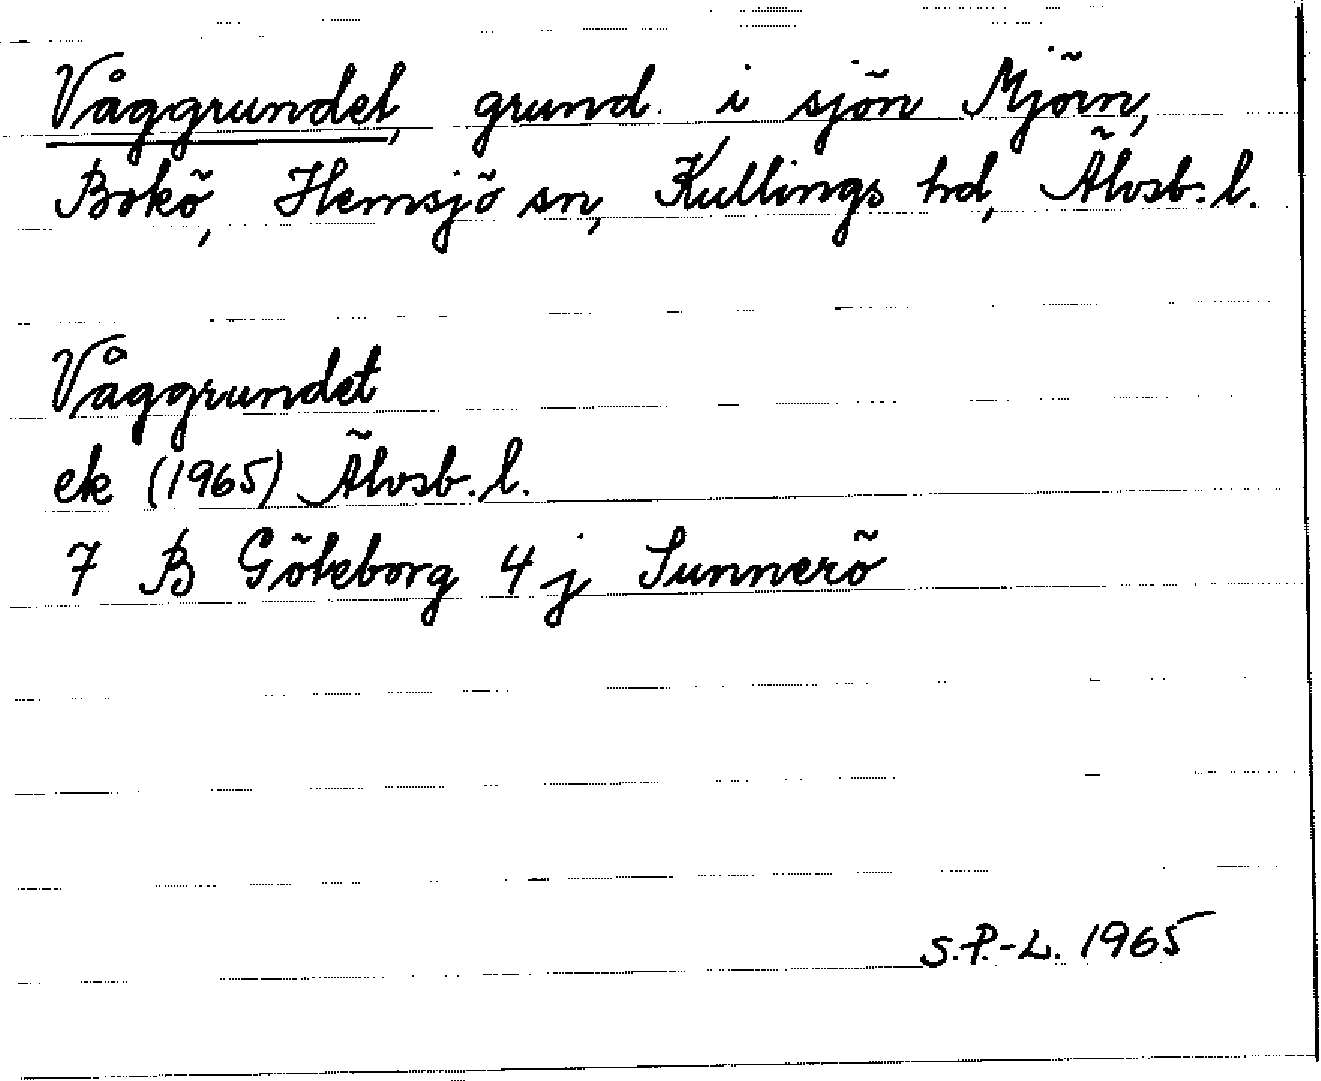 Våggrundet, grund i sjön Mjörn,
Bokö, Hemsjö sn, Kullings hd, Älvsb. l.
Våggrundet
ek (1965) Älvsb. l.
7 B Göteborg 4 j Sunnerö
S.P.-L. 1965